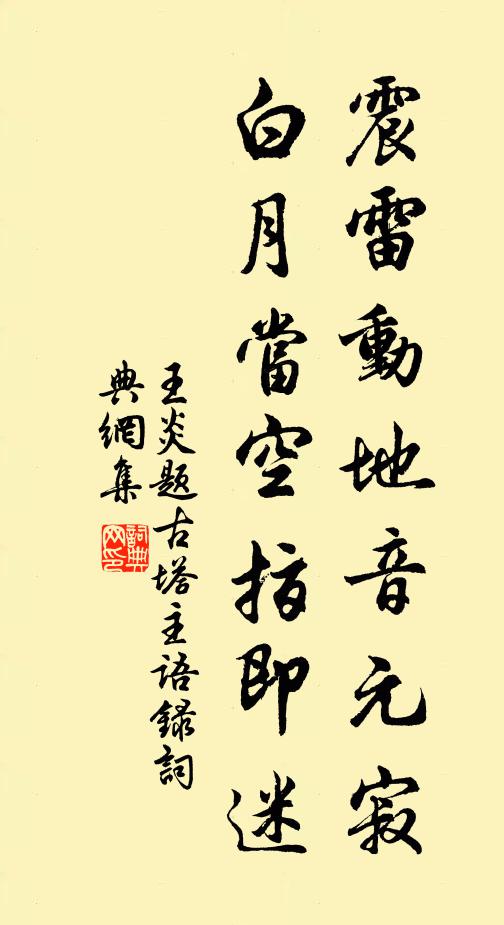 震雷動地音元寂
白月當空指即迷
王炎题古塔主語録詞
典網集
詞典
网印